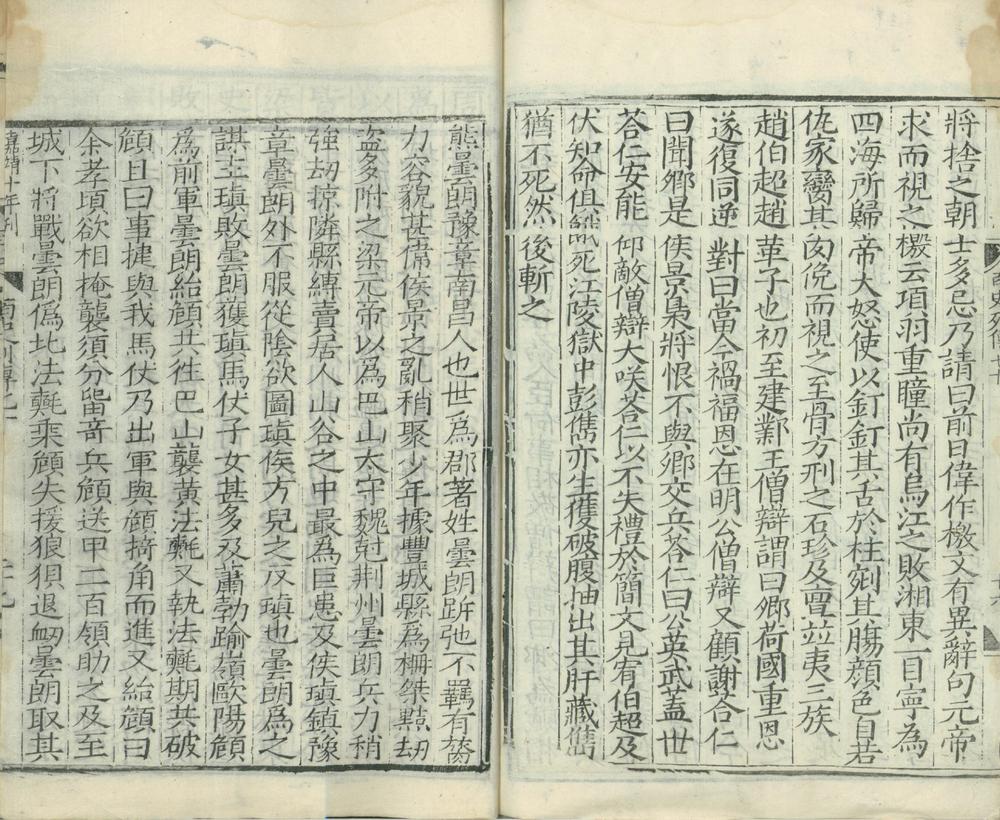 將捨之朝士多忌乃請曰前日偉作檄文有異辭句元帝
求而視之檄云項羽重瞳尚有烏江之敗湘東一目寧為
四海所歸帝大怒使以釘釘其舌於柱剜其腸顔色自若
仇家臠其肉俛而視之至骨方刑之石珍及亶並夷三族
趙伯超趙革子也初至建鄴王僧辯謂曰卿荷國重恩
遂復同逆對曰當今禍福恩在明公僧辯又顧謝答仁
曰聞卿是侯景梟將恨不與卿交兵荅仁曰公英武蓋世
荅仁安能仰敵僧辯大咲荅仁以不失禮於簡文見宥伯超及
伏知命俱餓死江陵獄中彭儁亦生獲破腹抽出其肝藏儁
猶不死然後斬之
熊曇朗豫章南昌人也世爲郡著姓曇朗跅弛不羈有膂
力容貌甚偉侯景之亂稍聚少年據豐城縣爲柵桀黠劫
盜多附之梁元帝以爲巴山太守魏剋荆州曇朗兵力稍
強劫掠隣縣縛賣居人山谷之中最爲巨患及侯瑱鎮豫
章曇朗外示服從陰欲圖瑱侯方兒之反瑱也曇朗爲之
謀主瑱敗曇朗獲瑱馬仗子女甚多及蕭勃踰嶺歐陽頠
爲前軍曇朗紿頠共往巴山襲黃法𣰰又執法𣰰期共破
頠且曰事捷與我馬仗乃出軍與頠掎角而進又紿頠曰
余孝頃欲相掩襲須分留奇兵頠送甲二百領助之及至
城下將戰曇朗僞北法𣰰乘頠失援狼狽退衂曇朗取其
嘉靖十年刊